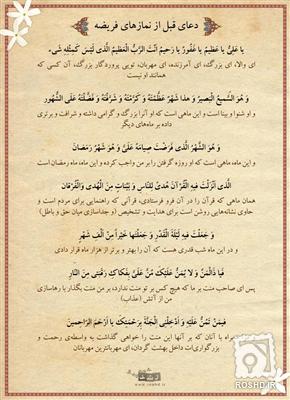 دعای قبل از نمازهای فریضه
یا عَلِیُّ یا عَظیمُ یا غَفُورُ یا رَحیمُ اَنْتَ الرَّبُّ الْعَظیمُ الَّذی لَیْسَ کَمِثْلِهِ شَیء
ای والا، ای بزرگ، ای آمرزنده، ای مهربان، تویی پروردگار بزرگ، آن کسی که
همانند او نیست
وَ هُوَ السَّمیعُ الْبَصیرُ وَ هذا شَهْرٌ عَظَّمْتَهُ وَ کَرَّمْتَهُ وَ شَرَّفْتَهُ وَ فَضَّلْتَهُ عَلَی الشُّهُورِ
و او شنوا و بیناست و این ماهی است که او آنرا بزرگ و گرامی داشته و شرافت و برتری
داده بر ماه‌های دیگر
وَ هُوَ الشَّهْرُ الَّذی فَرَضْتَ صِیامَهُ عَلَیَّ وَ هُوَ شَهْرُ رَمَضانَ
و این ماه، ماهی است که او روزه گرفتن را بر من واجب کرده و این ماه، ماه رمضان است
الَّذی اَنْزَلْتَ فیهِ الْقُرْآنَ هُدیً لِلنّاسِ وَ بَیِّناتٍ مِنَ الْهُدی وَالْفُرْقانَ
همان ماهی که قرآن را در آن فرو فرستادی، قرآنی که راهنمایی برای مردم است و
حاوی نشانه‌هایی روشن است برای هدایت و تشخیص (و جداسازی میان حق و باطل)
وَ جَعَلْتَ فیهِ لَیْلَةَ الْقَدْرِ وَ جَعَلْتَها خَیْراً مِنْ اَلْفِ شَهْرٍ
و در این ماه شب قدری هست که آن را بهتر و برتر از هزار ماه قرار دادی
فَیا ذَالْمَنِّ وَ لا یُمَنُّ عَلَیْکَ مُنَّ عَلَیَّ بِفَکاکِ رَقَبَتی مِنَ النّارِ
پس ای صاحب منت بر ما که هیچ کس بر تو منت ندارد، بر من منت بگذار با رهاسازی
من از آتش (عذاب)
فیمَنْ تَمُنُّ عَلَیْهِ وَ اَدْخِلْنِی الْجَنَّةَ بِرَحْمَتِکَ یا اَرْحَمَ الرّاحِمینَ
همراه با آنان که بر آنها این منت را خواهی گذاشت به واسطه‌ی رحمت و
بزرگواری‌ات داخل بهشت گردان، ای مهربانترین مهربانان
ROSHD.IR